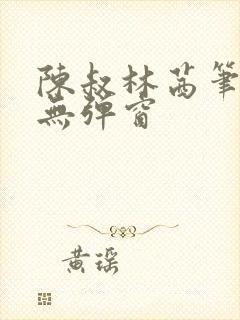 陳叔林茜筆
無彈窗
黃瑤